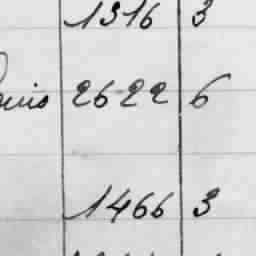 1316 3
2622 6
1466 3